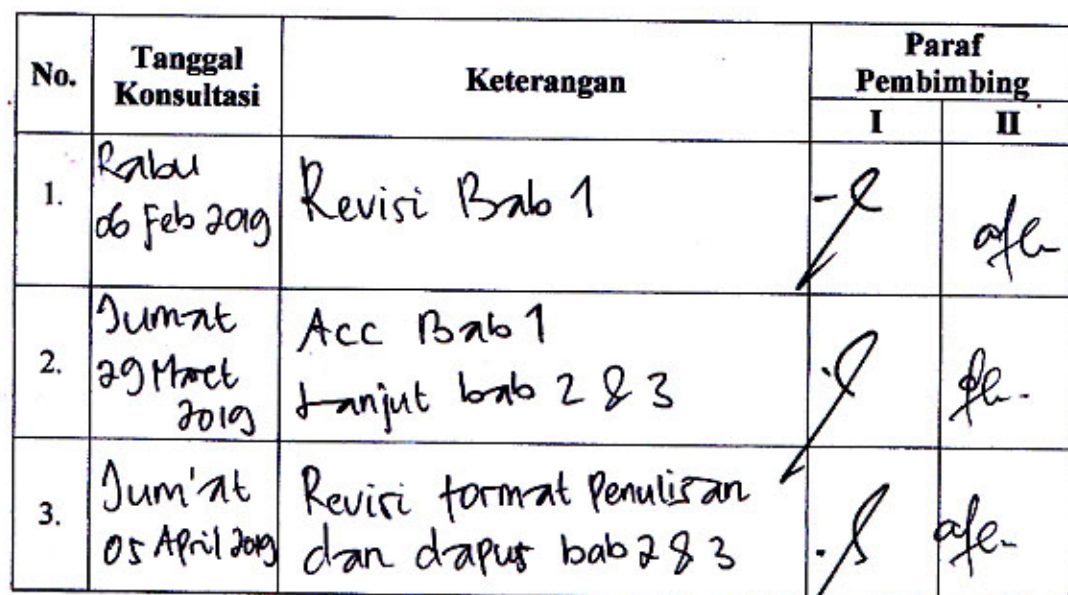 No. Tanggal Konsultasi Keterangan Paraf Pembimbing
I II
1. Rabu 06 Feb 2019 Revisi Bab 1
2. Jumat 29 Maret 2019 Acc Bab 1 Lanjut bab 2 & 3
3. Jum'at 05 April 2019 Revisi format Penulisan dan dapus bab 2 & 3